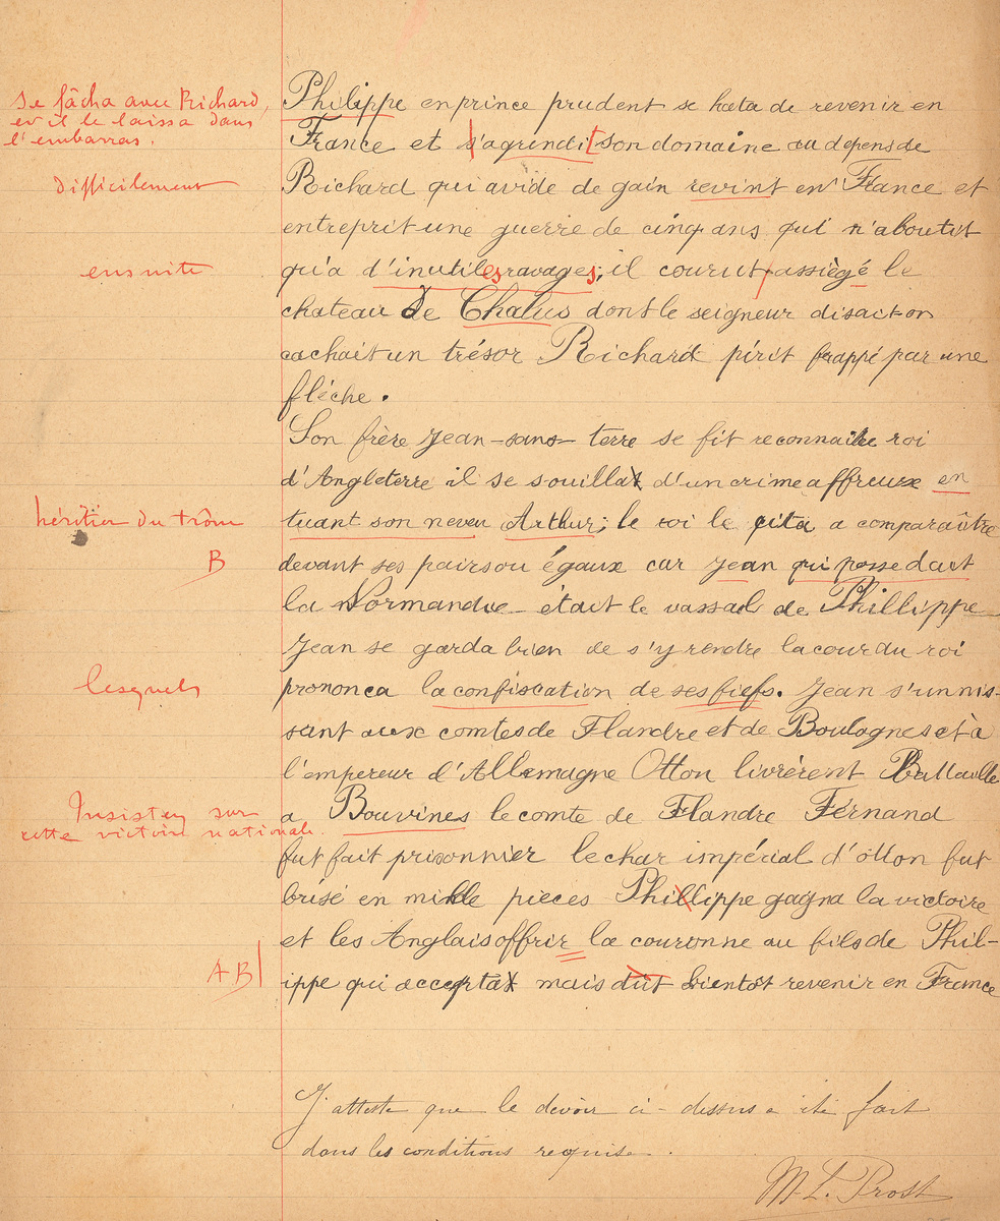 se fâcha avec Richard,
et il le laissa dans
l'embarras.
Philippe en prince prudent se hata de revenir en
France et s'agrendit son domaine au depens de
difficilement
Richard qui avide de gain revint en France et
entreprit une guerre de cinq ans qui n'aboutit
ensuite
qu'a d'inutiles ravages; il courut assiégé le
chateau de Chalus dont le seigneur disait-on
cachait un trésor Richard périt frappé par une
fléche.
Son frère Jean-sans-terre se fit reconnaitre roi
d'Angleterre il se souilla d'un crime affreux en
héritier du trône
tuant son neveu Arthur; le roi le cita a comparaître
B
devant ses pairs ou égaux car Jean qui possedait
la Normandie était le vassal de Phillippe
Jean se garda bien de s'y rendre la cour du roi
lesquels
prononca la confiscation de ses fiefs. Jean s'unnis-
sant aux comtes de Flandre et de Boulogne et à
l'empereur d'Allemagne Otton livrèrent Battaille
Insister sur
cette victoire nationale.
a Bouvines le comte de Flandre Fernand
fut fait prisonnier le char impérial d'otton fut
brisé en mille pieces Phillippe gagna la victoire
et les Anglais offrir la couronne au fils de Phil-
AB
ippe qui accepta mais dût bientôt revenir en France
J'atteste que le devoir ci-dessus a été fait
dans les conditions requises.
M. L. Prost